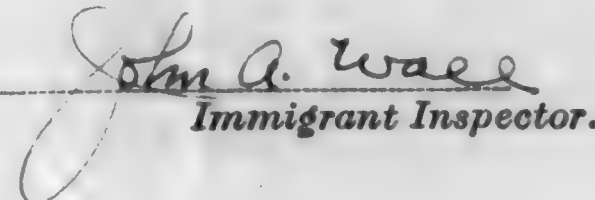 John A. Wall
Immigrant Inspector.